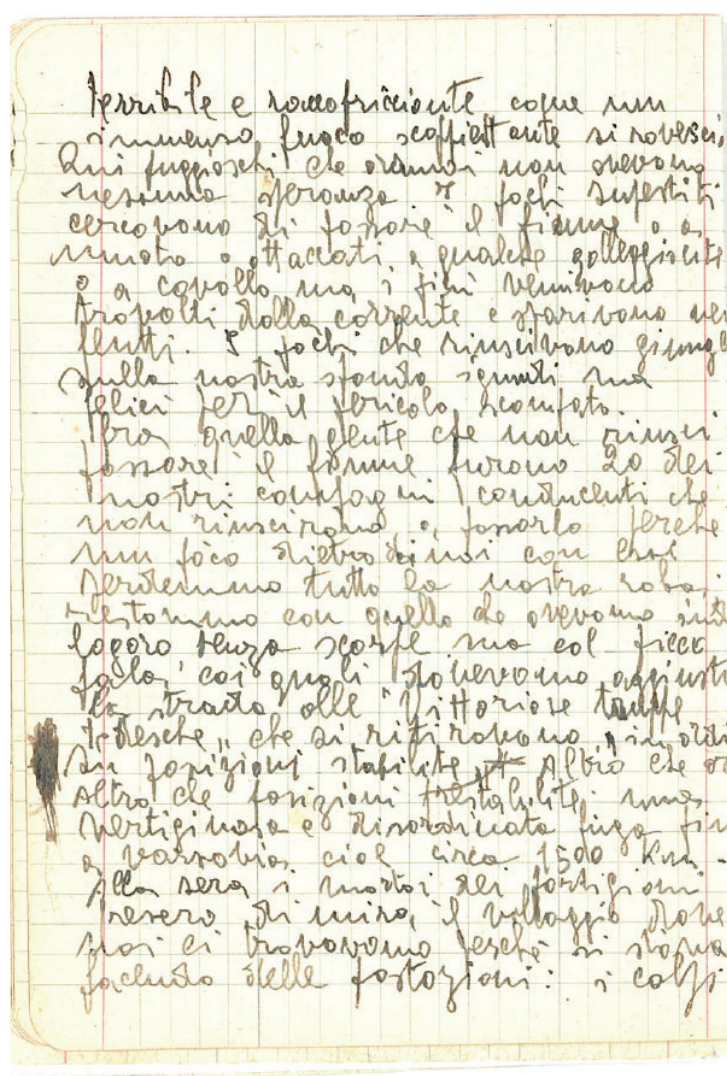 terribile e raccapricciante come un
immenso fuoco scoppiettante si rovesci
Qui fuggiaschi che oramai non avevano
nessuna speranza I pochi superstiti
cercavano di passare il fiume o a
nuoto o attaccati a qualche galleggiante
o a cavallo ma i più venivano
travolti dalla corrente e sparivano nei
flutti. I pochi che riuscivano giunge
sulla nostra sponda ignudi ma
felici per il pericolo scampato.
Fra quella gente che non riusci
passare il fiume furono 20 dei
nostri compagni conducenti che
non riuscirono a passarlo perche
un poco dietro di noi con essi
perdemmo tutta la nostra roba,
restammo con quello che avevamo ind
logoro senza scarpe ma col picco
pala, coi quali dovevamo aggiusta
la strada alle "Vittoriose truppe
tedesche" che si ritiravano "in ordi
su posizioni stabilite Altro che or
Altro che posizioni prestabilite, una
vertiginosa e disordinata fuga fin
a varsavia cioè circa 1500 Km.
Alla sera i mortai dei partigiani
presero di mira il villaggio dove
noi ci trovavamo perchè si stava
facendo delle postazioni: i colpi